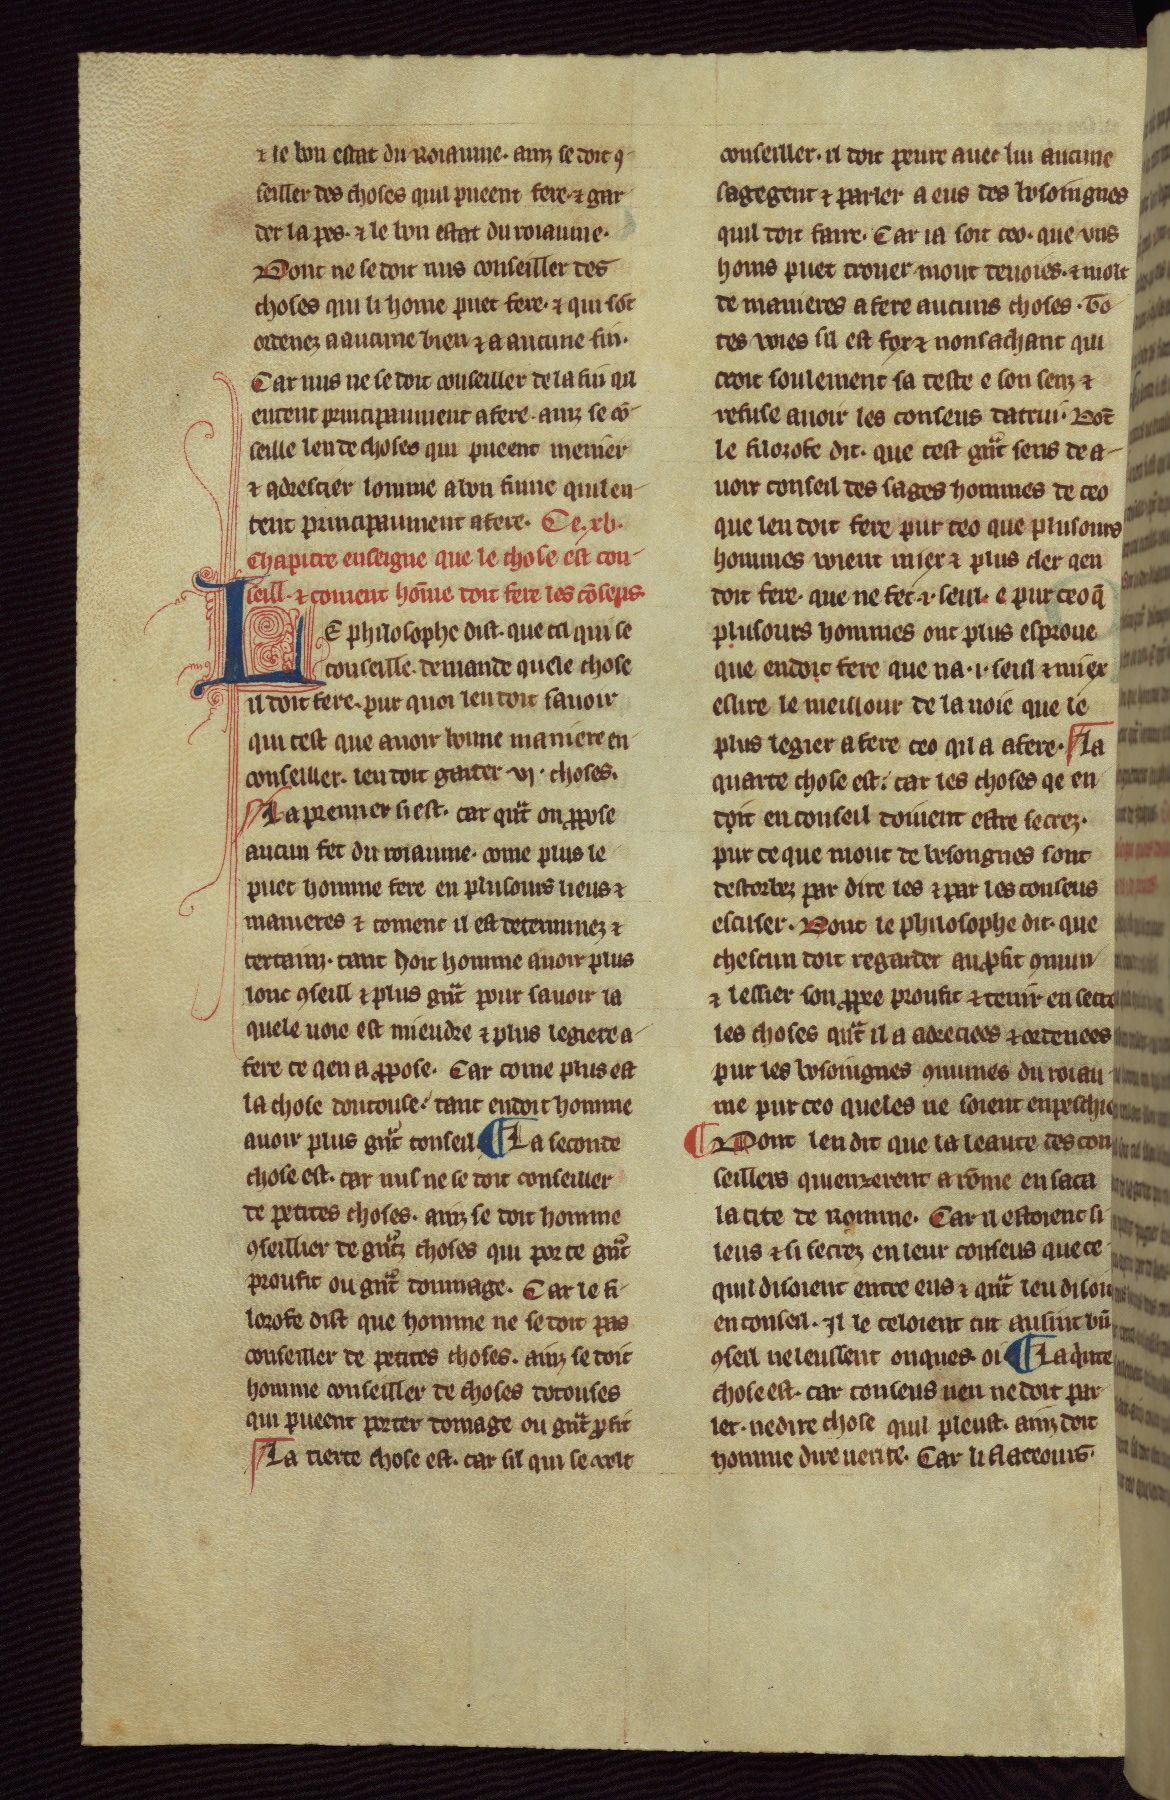 ⁊ le bon estat du Roiaume. ainz se doit ꝯ-
seiller des choses quil pueent fere. ⁊ gar
der la pes. ⁊ le bon estat du roiaume.
Dont ne se doit nus conseiller des
choses qui li home puet fere. ⁊ qui sōt
ordenez a aucune bien ⁊ a aucune fin.
Car nus ne se doit conseiller de la fin qil
entent principaument a fere. ainz se cō-
seille len de choses qui pueent mener
⁊ adrescier lomme a bon fiune quil en-
tent principaument a fere. Ce .xv.
chapitre enseigne que le chose est con-
seill. ⁊ coment hōme doit fere les cōseus.
LE philosophe dist. que cil qui se
conseille. demande quele chose
il doit fere. pur quoi len doit savoir
qui cest que avoir bonne maniere en
conseiller. len doit garder .vi. choses.
La premier si est. car qn̄t on ꝓpose
aucun fet du roiaume. come plus le
puet homme fere en plusours lieus ⁊
manieres ⁊ coment il est determinez ⁊
certain. tant doit homme avoir plus
lonc ꝯseill ⁊ plus gn̄t pour savoir la
quele voie est mieudre ⁊ plus legiere a-
fere ce qen a ꝓpose. Car come plus est
la chose doutouse. tant en doit homme
avoir plus gn̄t conseil. La seconde
chose est. car nul ne se doit conseiller
de petites choses. ainz se doit homme
ꝯseillier de gn̄tz choses qui porte gn̄t
proufit ou gn̄t doumage. Car le fi-
lozofe dist que homme ne se doit pas
conseiller de petites choses. ainz se doit
homme conseiller de choses dotouses
qui pueent porter domage ou gn̄t ꝓfit
La tierce chose est. car sil qui se velt
conseiller. il doit penre avec lui aucune
sage gent ⁊ parler a eus des besoingnes
quil doit faire. Car ia soit ceo. que uns
homs puet trover mout devoies. ⁊ molt
de manieres a fere aucuns choses. To
tes voies sil est fox ⁊ nonsachant qui
croit soulement sa teste e son senz ⁊
refuse avoir les conseus dautrui. Dōt
le filozofe dit. que cest gn̄t sens de a-
voir conseil des sages hommes de ceo
que len doit fere pur ceo que plusours
hommes voient miex ⁊ plus cler qen
doit fere. que ne fet .i. seul. e pur ceo q̄
plusours hommes ont plus esprove
que en doit fere que na .i. seul ⁊ miex
eslire le meillour de la voie que le
plus legier a fere ceo qil a a fere. La
quarte chose est. car les choses qe en
doit en conseil doivent estre secrez.
pur ce que mout de besongnes sont
destorbez par dire les ⁊ par les conseus
escuser. Dont le philosophe dit. que
chescun doit regarder au ꝓfit ꝯmun
⁊ lessier son ꝓpre proufit ⁊ tenir en secre
les choses qn̄t il a adreciees ⁊ ordenees
pur les besoingnes ꝯmunes du roiau-
me pur ceo queles ne soient enpeschie
Dont len dit que la leaute des con
seillers
la cite de Romme. Car il estoient si
leus ⁊ si secrez en leur conseus que ce
quil disoient entre eus ⁊ qn̄t len disoit
en conseil. Il le celoient tut ausint
ꝯseil ne leussent onques oi. La q̄inte
chose est. car conseus nen ne doit par
ler. ne dire chose quil pleust. ainz doit
homme dire verite. Car li flateours